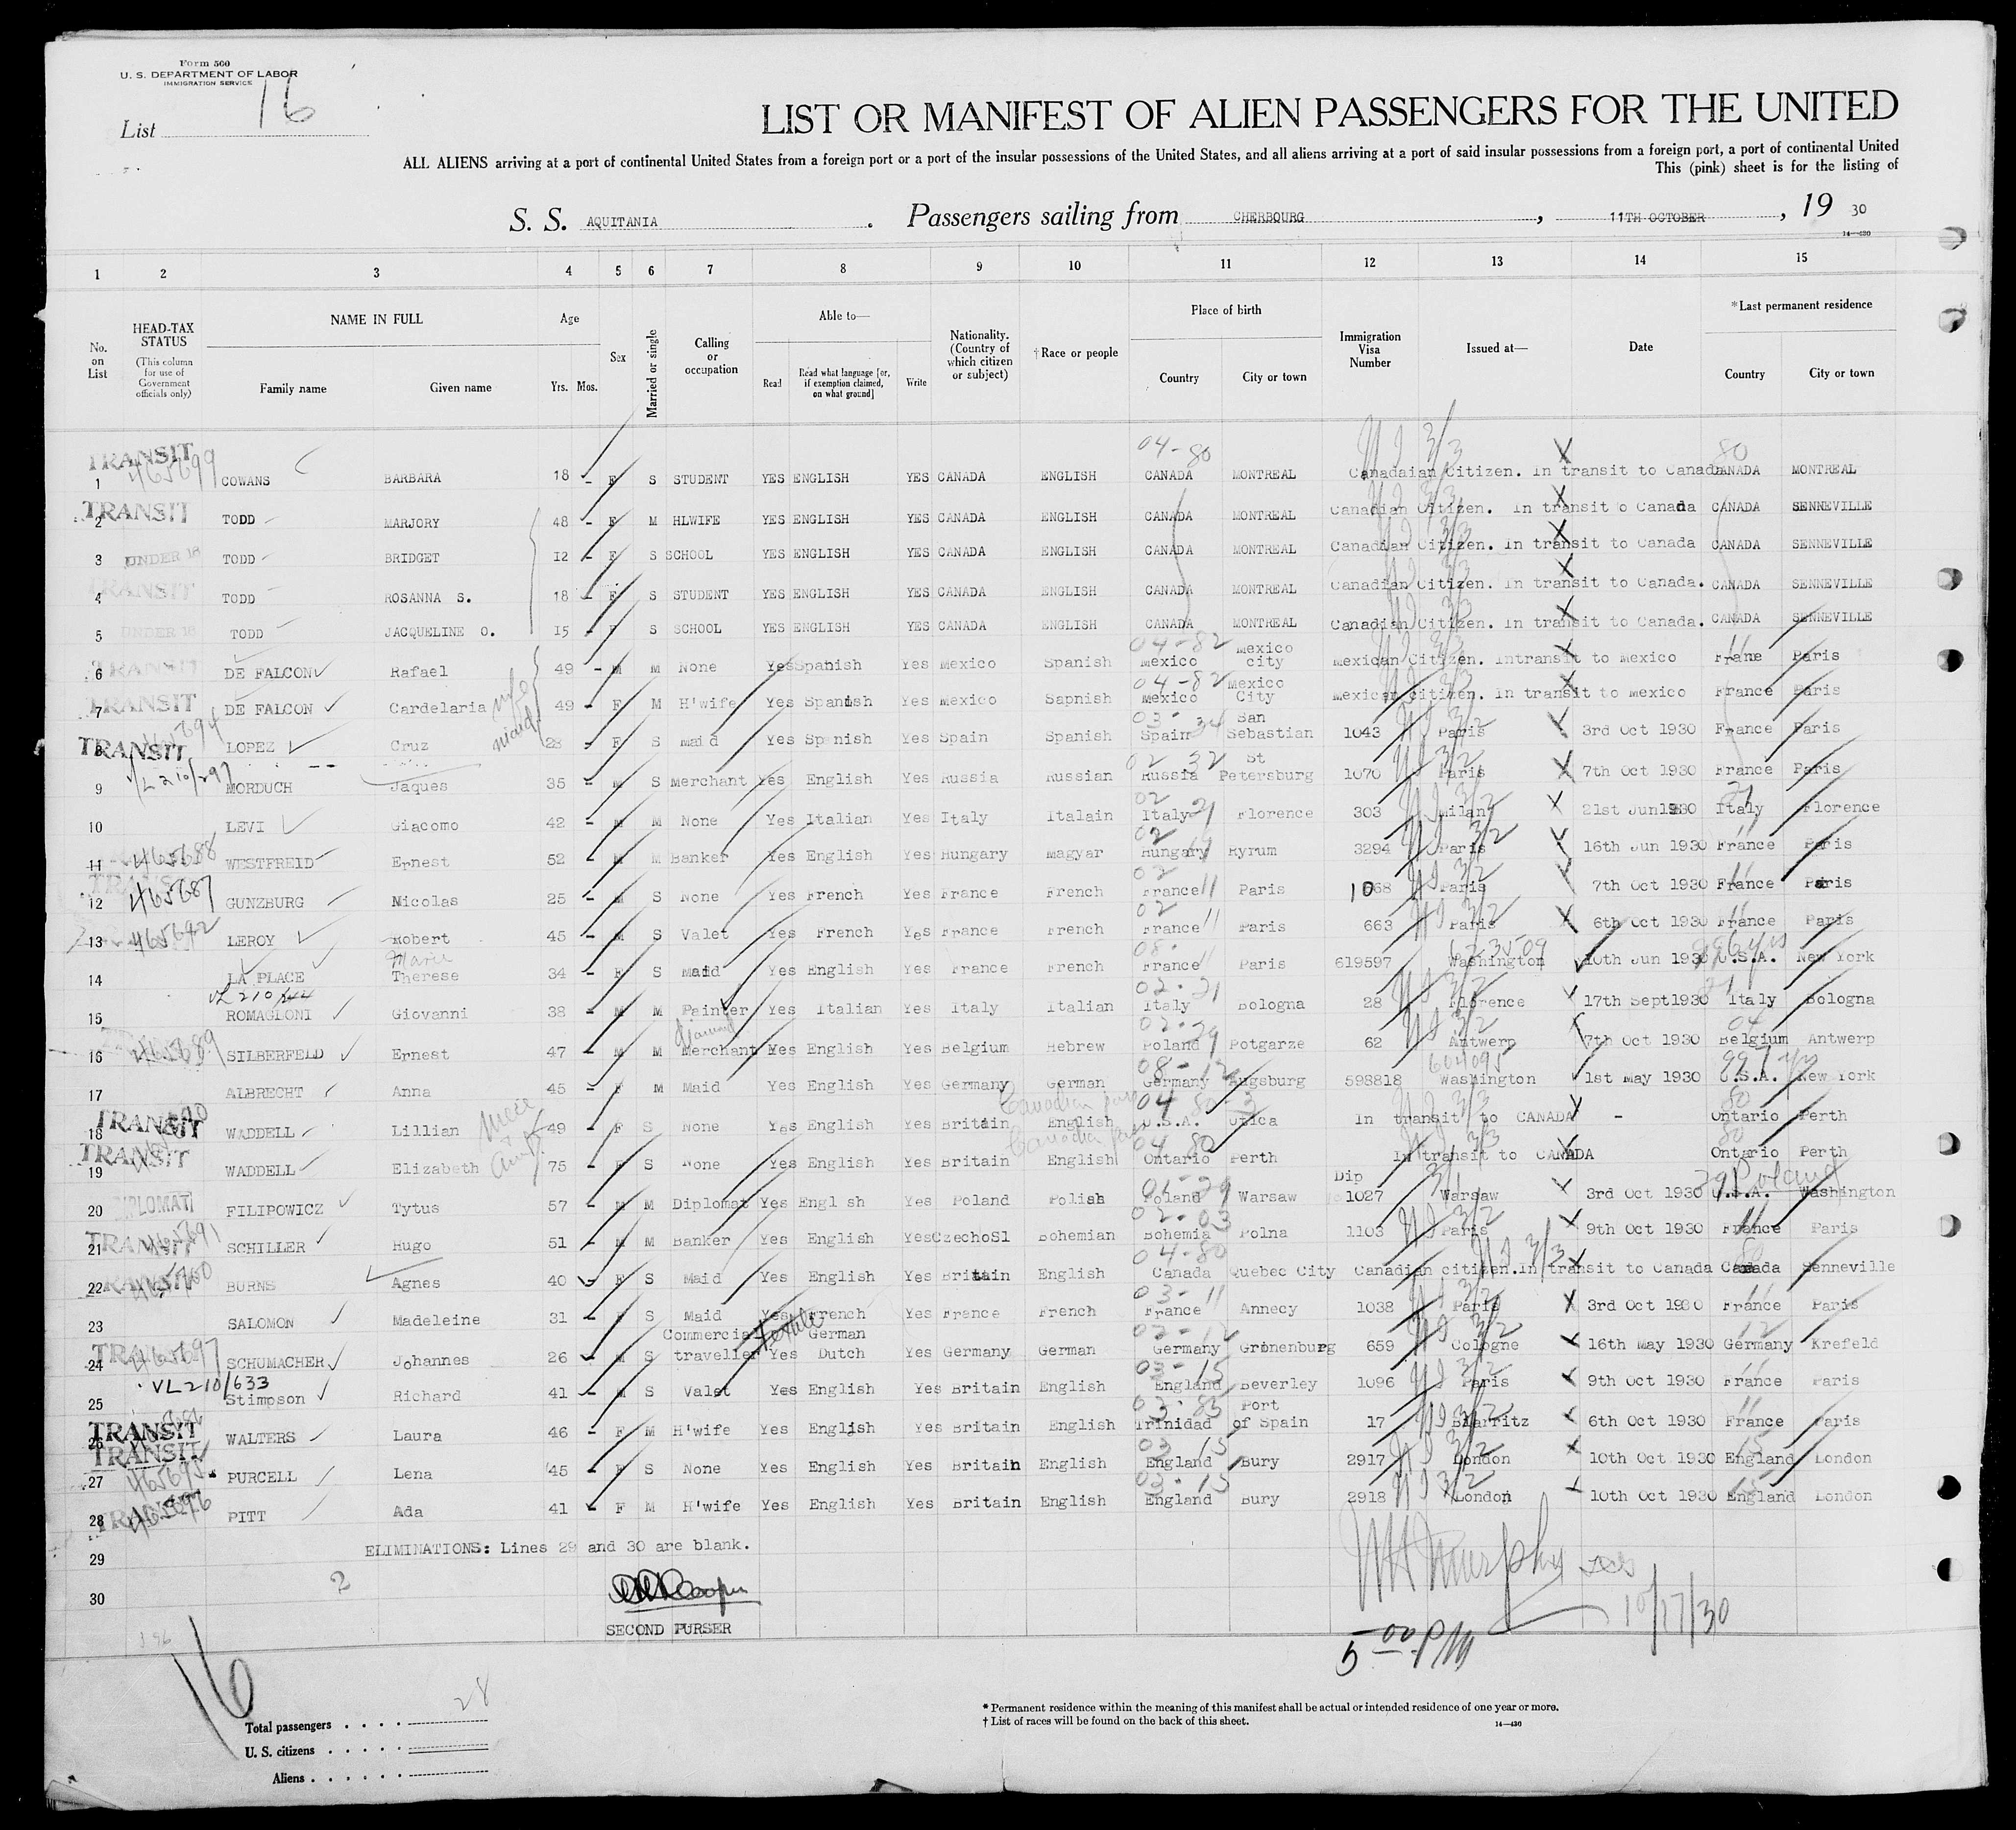 Form 500
U. S. DEPARTMENT OF LABOR
IMMIGRATION SERVICE
List 16
LIST OR MANIFEST OF ALIEN PASSENGERS FOR THE UNITED
ALL ALIENS arriving at a port of continental United States from a foreign port or a port of the insular possessions of the United States, and all aliens arriving at a port of said insular possessions from a foreign port, a port of continental United
This (pink) sheet is for the listing of
S. S. AQUITANIA. Passengers sailing from CHERBOURG, 11TH OCTOBER, 19 30
14-430
1 2 3 4 5 6 7 8 9 10 11 12 13 14 15
No. on List
HEAD-TAX STATUS (This column for use of Government officials only)
NAME IN FULL Family name Given name
Age Yrs. Mos.
Sex
Married or single
Calling or occupation
Able to— Read Read what language [or, if exemption claimed, on what ground] Write
Nationality. (Country of which citizen or subject)
†Race or people
Place of birth Country City or town
Immigration Visa Number
Issued at—
Date
*Last permanent residence Country City or town
1 TRANSIT 465699 COWANS BARBARA 18 - F S STUDENT YES ENGLISH YES CANADA ENGLISH 04-80 CANADA MONTREAL Canadaian Citizen. In transit to Canada 80 CANADA MONTREAL
2 TRANSIT TODD MARJORY 48 - F M HLWIFE YES ENGLISH YES CANADA ENGLISH CANADA MONTREAL Canadian Citizen. In transit o Canada CANADA SENNEVILLE
3 UNDER 16 TODD BRIDGET 12 - F S SCHOOL YES ENGLISH YES CANADA ENGLISH CANADA MONTREAL Canadian Citizen. In transit to Canada CANADA SENNEVILLE
4 TRANSIT TODD ROSANNA S. 18 - F S STUDENT YES ENGLISH YES CANADA ENGLISH CANADA MONTREAL Canadian Citizen. In transit to Canada. CANADA SENNEVILLE
5 UNDER 16 TODD JACQUELINE O. 15 - F S SCHOOL YES ENGLISH YES CANADA ENGLISH CANADA MONTREAL Canadian Citizen. In transit to Canada. CANADA SENNEVILLE
6 TRANSIT DE FALCON Rafael 49 - M M None Yes Spanish Yes Mexico Spanish 04-82 Mexico Mexico city Mexican Citizen. Intransit to Mexico Frane Paris
7 TRANSIT DE FALCON Cardelaria wife 49 - F M H'wife Yes Spanish Yes Mexico Sapnish 04-82 Mexico Mexico City Mexican Citizen. In transit to Mexico France Paris
8 TRANSIT LOPEZ Cruz maid 28 - F S Maid Yes Spanish Yes Spain Spanish 03-34 Spain San Sebastian 1043 Paris 3rd Oct 1930 France Paris
9 VL 210/297 MORDUCH Jaques 35 - M S Merchant Yes English Yes Russia Russian 02 32 Russia St Petersburg 1070 Paris 7th Oct 1930 France Paris
10 LEVI Giacomo 42 - M M None Yes Italian Yes Italy Italain 02 21 Italy Florence 303 Milan 21st Jun1930 21 Italy Florence
11 465688 WESTFREID Ernest 52 - M M Banker Yes English Yes Hungary Magyar 02 19 Hungary Ryrum 3294 Paris 16th Jun 1930 France Paris
12 465687 GUNZBURG Nicolas 25 - M S None Yes French Yes France French 02 11 France Paris 1068 Paris 7th Oct 1930 France Paris
13 465692 LEROY Robert 45 - M S Valet Yes French Yes France French 02 11 France Paris 663 Paris 6th Oct 1930 France Paris
14 LA PLACE Marie Therese 34 - F S Maid Yes English Yes France French 08-11 France Paris 619597 Washington 10th Jun 1930 U.S.A. New York
15 VL 210/244 ROMAGLONI Giovanni 38 - M M Painter Yes Italian Yes Italy Italian 02-21 Italy Bologna 28 Florence 17th Sept1930 21 Italy Bologna
16 465689 SILBERFELD Ernest 47 - M M diamond Merchant Yes English Yes Belgium Hebrew 02-29 Poland Potgarze 62 Antwerp 7th Oct 1930 04 Belgium Antwerp
17 ALBRECHT Anna 45 - F M Maid Yes English Yes Germany German 08-12 Germany Augsburg 598818 604095 Washington 1st May 1930 99 7 yrs U.S.A. New York
18 TRANSIT WADDELL Lillian niece 49 - F S None Yes English Yes Britain English 04 80 U.S.A. Utica In transit to CANADA - 80 Ontario Perth
19 TRANSIT WADDELL Elizabeth aunt 75 - F S None Yes English Yes Britain English 04 80 Ontario Perth In transit to CANADA 80 Ontario Perth
20 DIPLOMAT FILIPOWICZ Tytus 57 - M M Diplomat Yes Engl sh Yes Poland Polish 01-29 Poland Warsaw Dip 1027 Warsaw 3rd Oct 1930 29 Poland U.S.A. Washington
21 TRANSIT 465691 SCHILLER Hugo 51 - M M Banker Yes English Yes CzechoSl Bohemian 02-03 Bohemia Polna 1103 Paris 9th Oct 1930 France Paris
22 TRANSIT 465700 BURNS Agnes 40 F S Maid Yes English Yes Brittain English 04-80 Canada Quebec City Canadian citizen.In transit to Canada 80 Canada Senneville
23 SALOMON Madeleine 31 - F S Maid Yes French Yes France French 03-11 France Annecy 1038 Paris 3rd Oct 1930 France Paris
24 465697 SCHUMACHER Johannes 26 - M S Commercial traveller textile Yes German Dutch Yes Germany German 02-12 Germany Gronenburg 659 Cologne 16th May 1930 12 Germany Krefeld
25 VL 210/633 Stimpson Richard 41 - M S Valet Yes English Yes Britain English 03-15 England Beverley 1096 Paris 9th Oct 1930 France Paris
26 TRANSIT WALTERS Laura 46 - F M H'wife Yes English Yes Britain English 03-83 Trinidad Port of Spain 17 Biarritz 6th Oct 1930 France Paris
27 TRANSIT 465695 PURCELL Lena 45 - F S None Yes English Yes Britain English 03 15 England Bury 2917 London 10th Oct 1930 15 England London
28 465696 PITT Ada 41 - F M H'wife Yes English Yes Britain English 03-15 England Bury 2918 London 10th Oct 1930 15 England London
29 ELIMINATIONS: Lines 29 and 30 are blank.
30 2
SECOND PURSER
10/17/30
5 00 PM
16
Total passengers 28
U. S. citizens
Aliens
* Permanent residence within the meaning of this manifest shall be actual or intended residence of one year or more.
† List of races will be found on the back of this sheet. 14-430